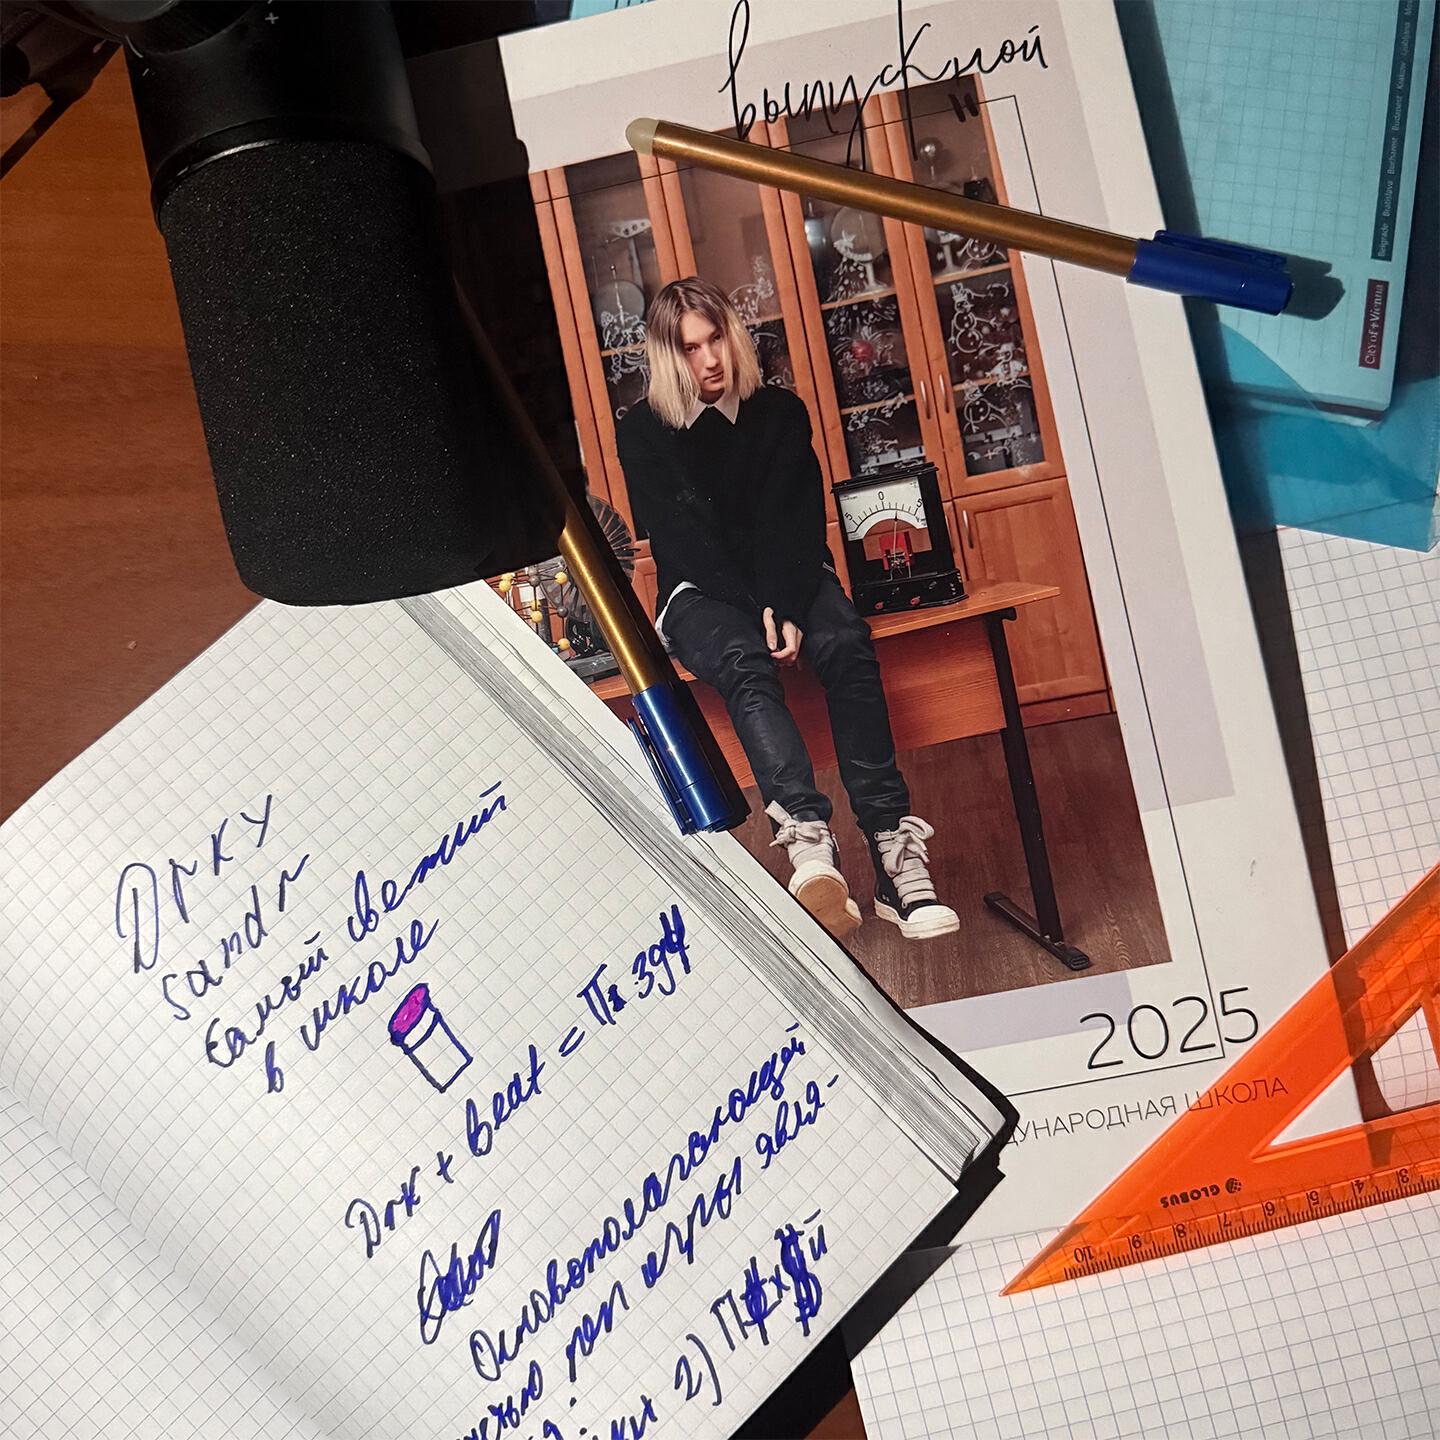 выпускной
"
2025
ДУНАРОДНАЯ ШКОЛА
Belgrade Bratislava Bucharest Budapest Krakow Ljubljana
CITY OF + Vienna
5 0 5
Drку
Sandr
Самый свежий
в школе
Drк + beat = П 39
Основополагающей
рэп игры явля-
2) П$х$й
GLOBUS
10 9 8 7 6 5 4 3